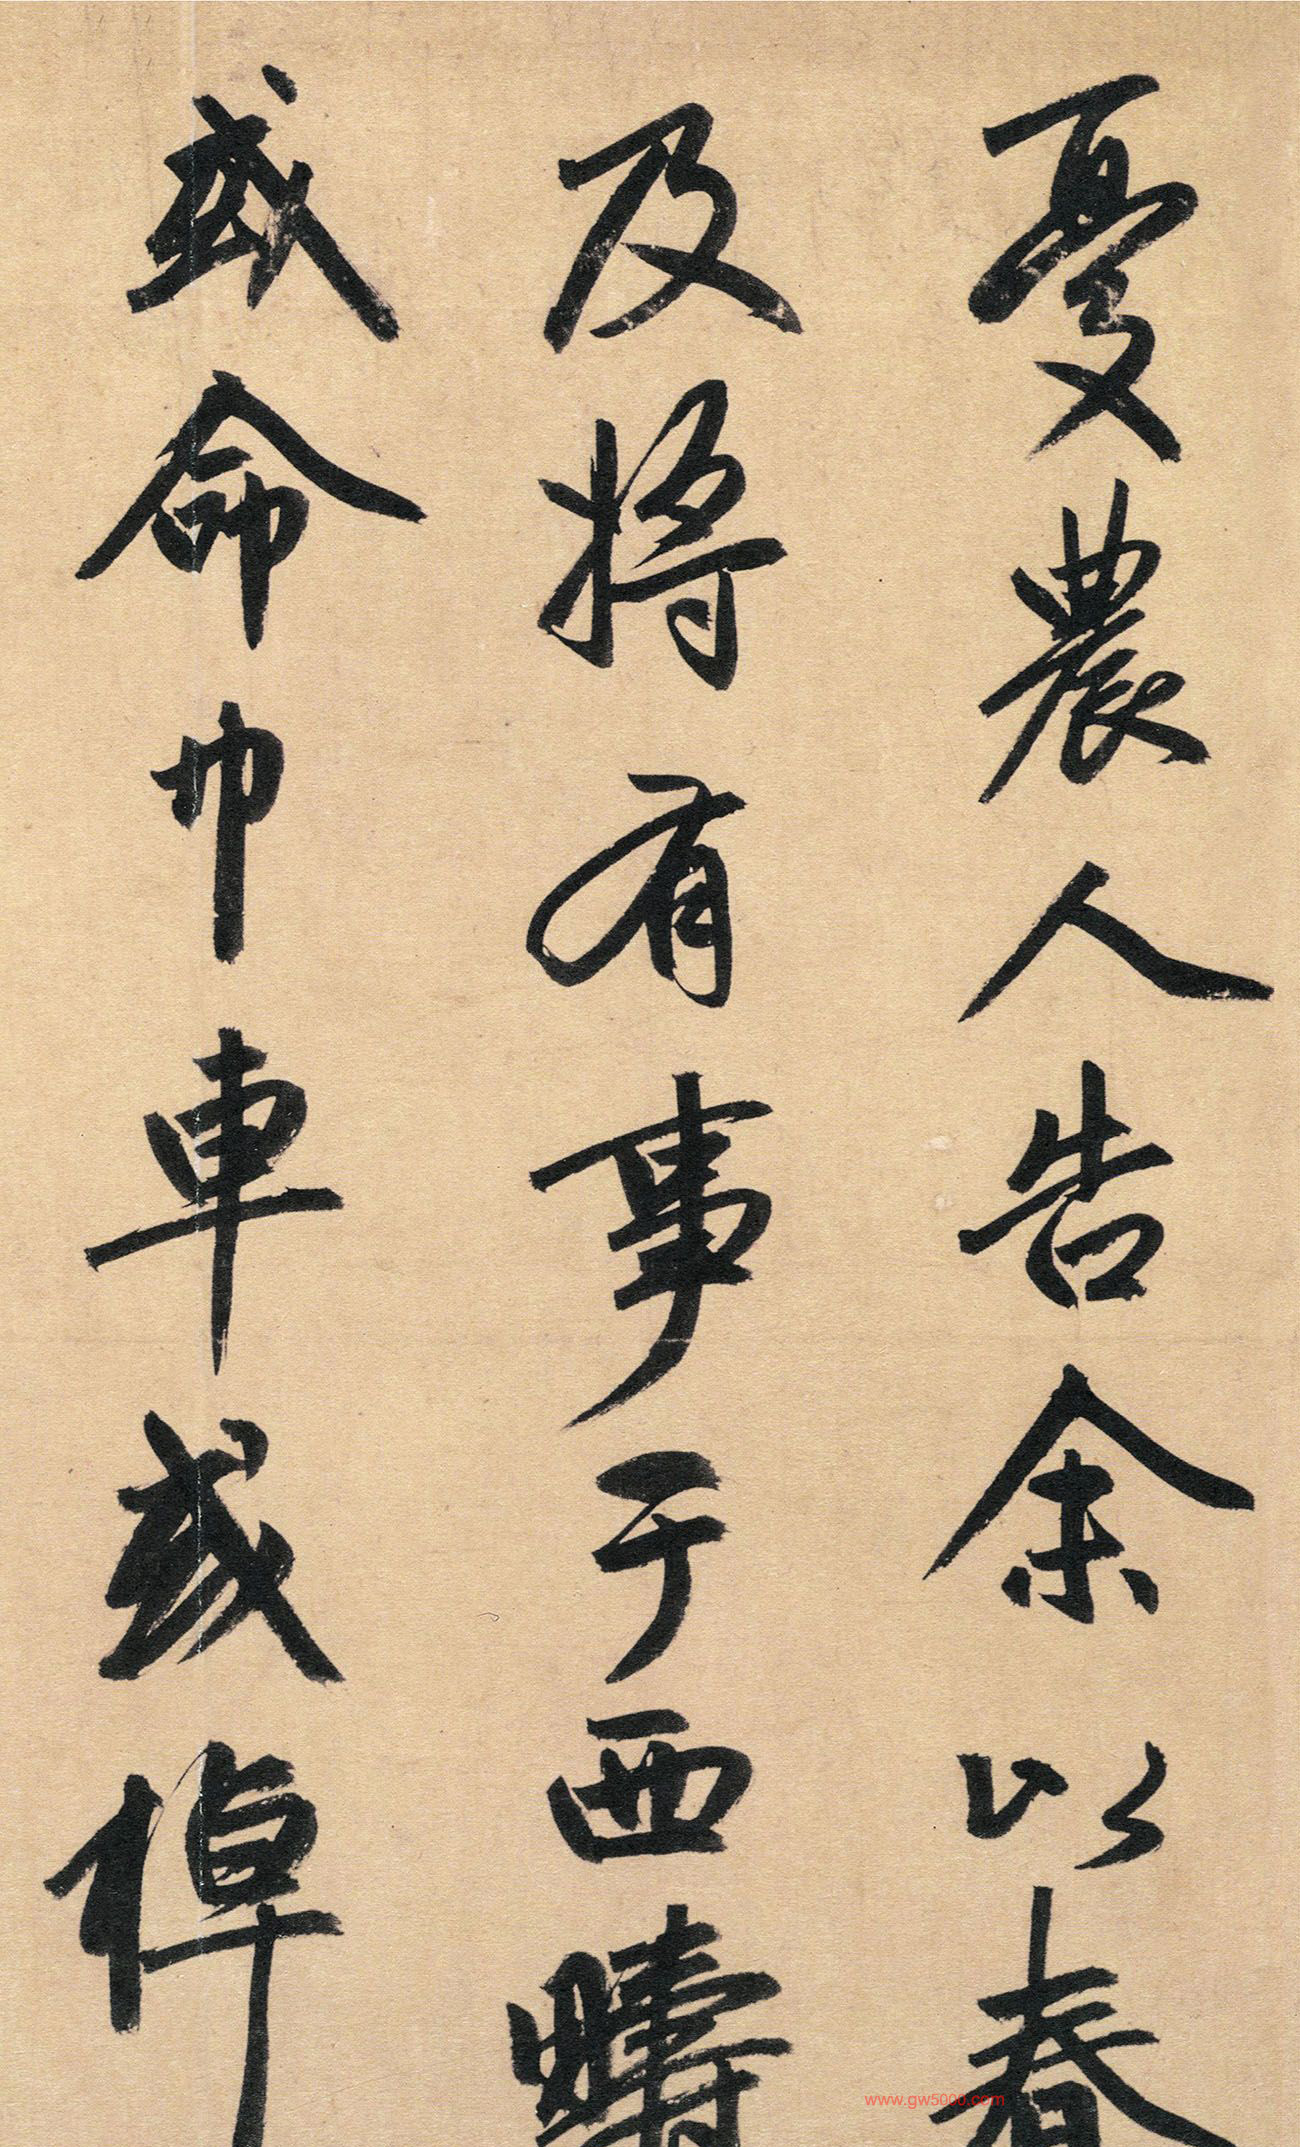 憂農人告余以春
及將有事于西疇
或命巾車或棹
www.gw5000.com